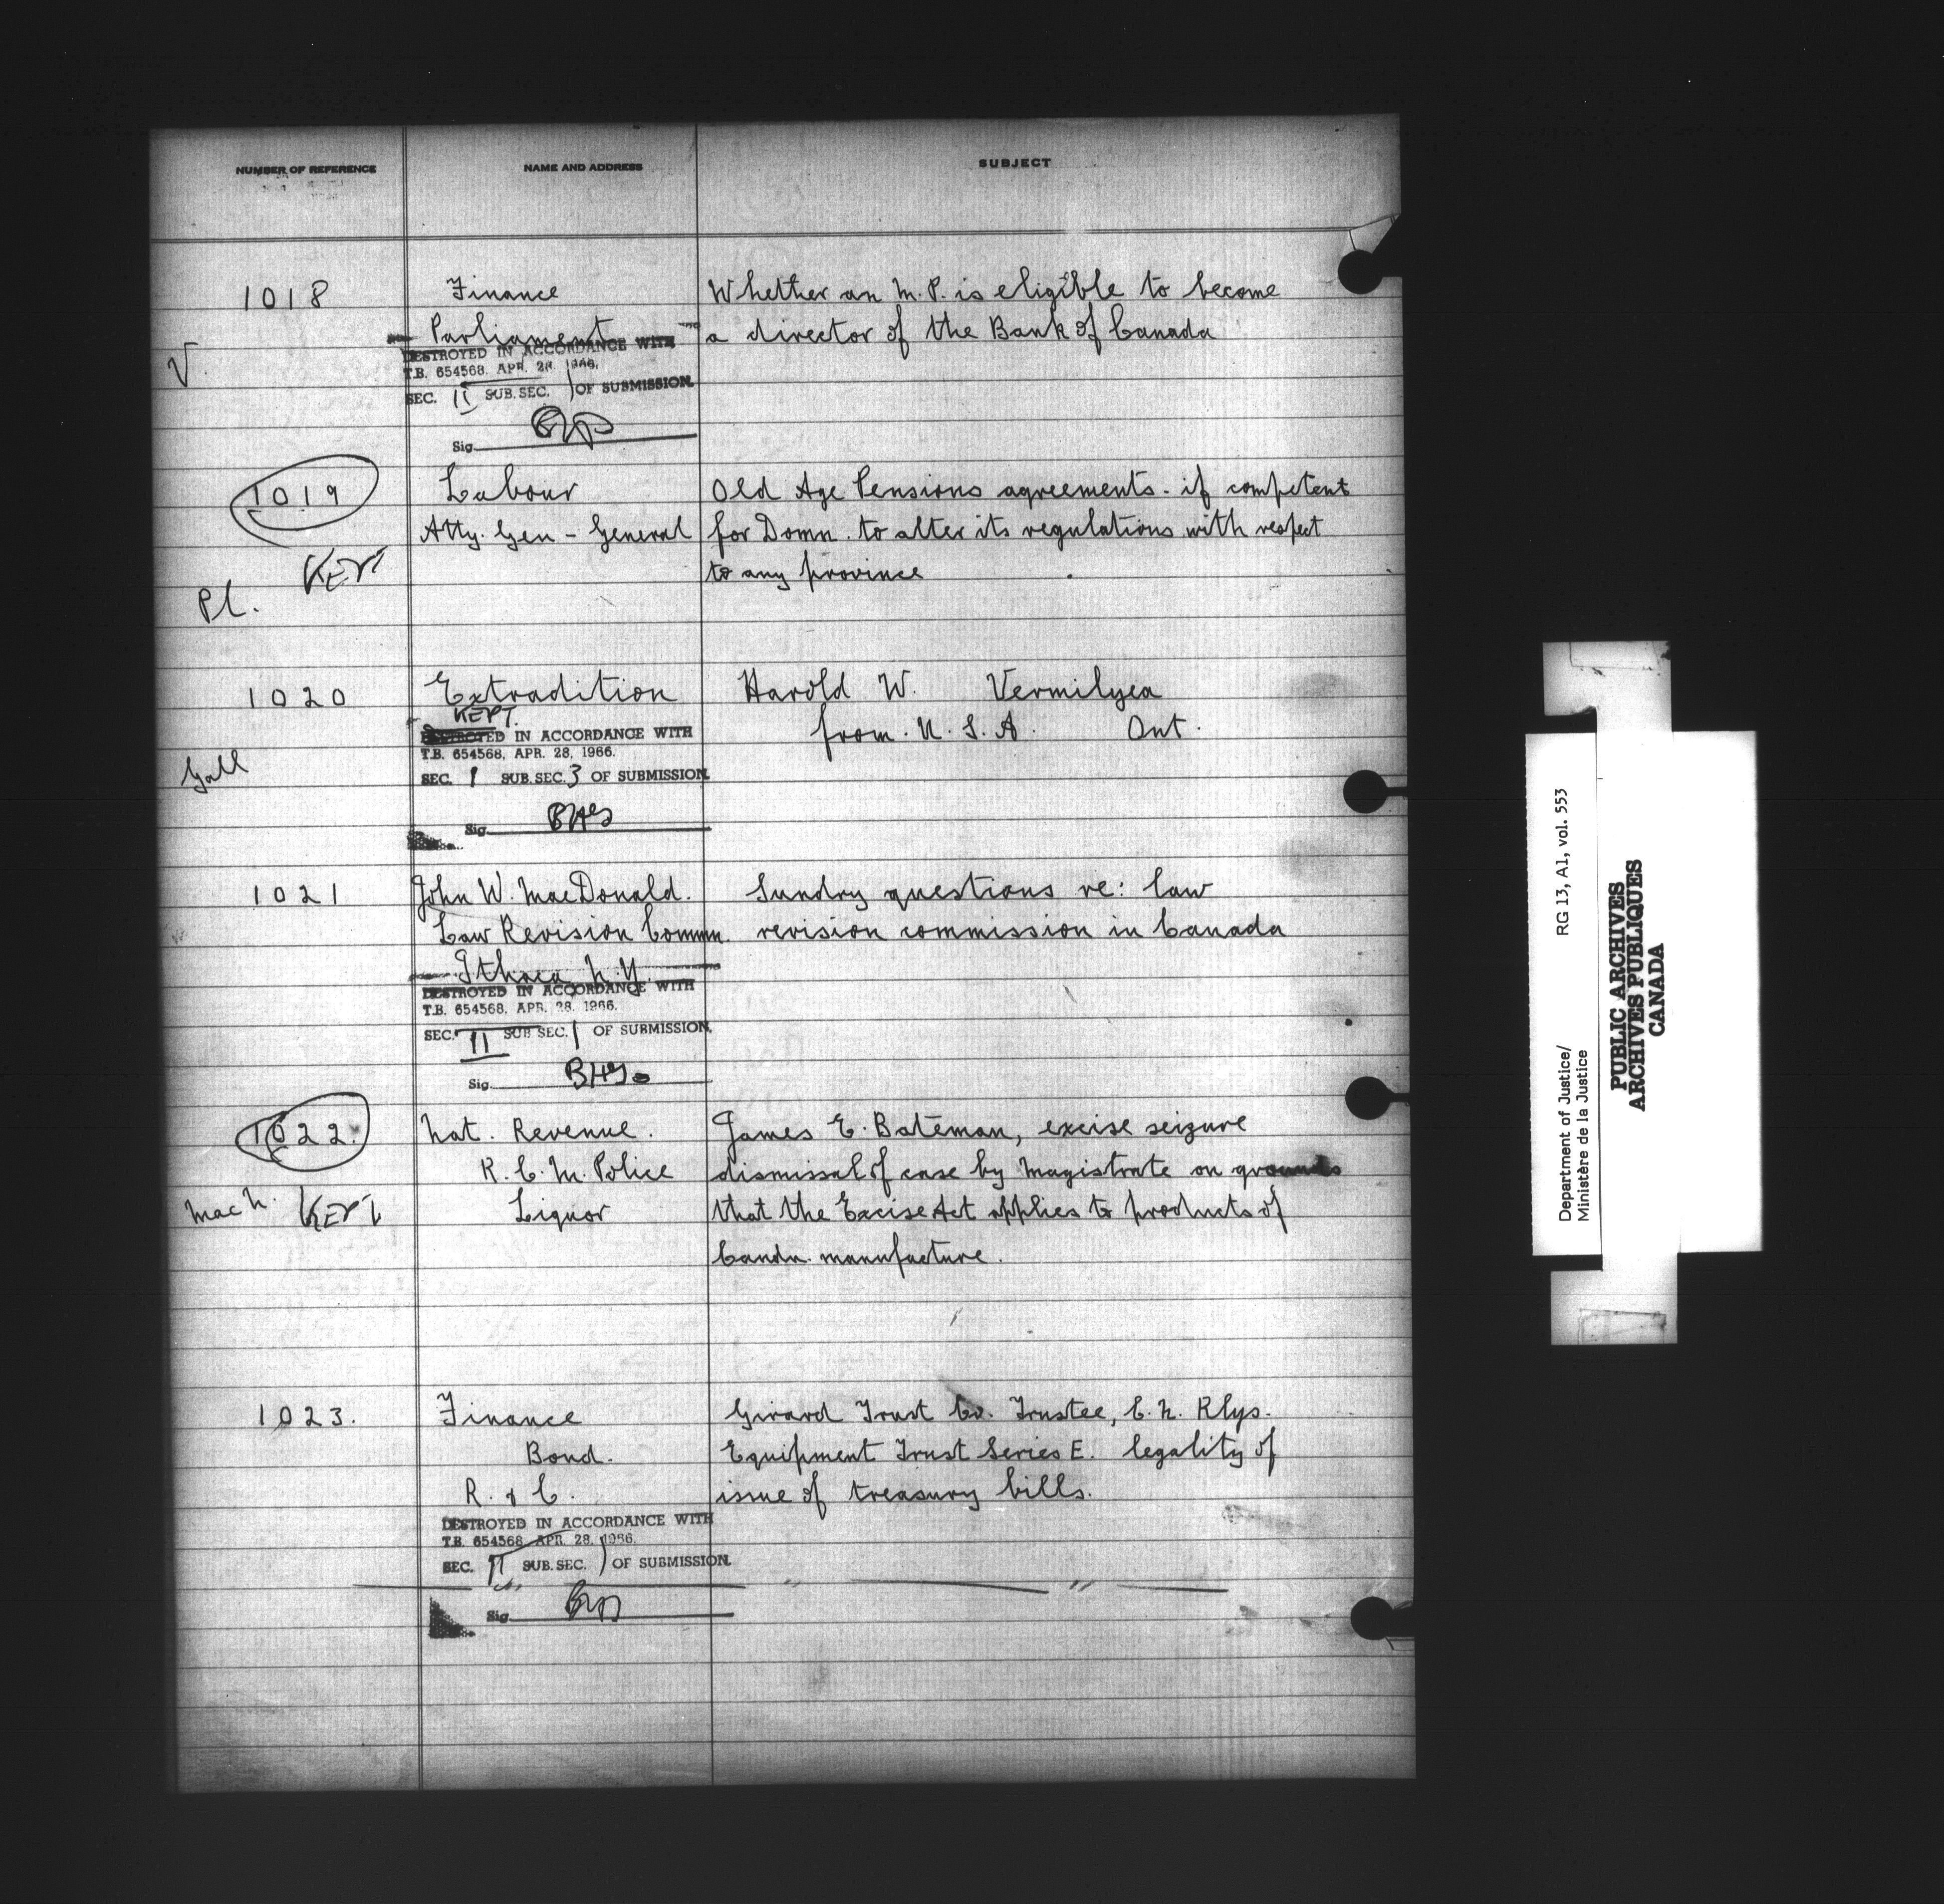 NUMBER OF REFERENCE NAME AND ADDRESS SUBJECT
1018 Finance Whether an M.P. is eligible to become
Parliament a director of the Bank of Canada
V.
DESTROYED IN ACCORDANCE WITH
T.B. 654568, APR. 28, 1966.
SEC. 11 SUB. SEC. 1 OF SUBMISSION.
Sig.
1019 Labour Old Age Pensions agreements. if competent
Atty. Gen - General for Domn. to alter its regulations with respect
KEPT to any province
Pl.
1020 Extradition Harold W. Vermilyea
KEPT. from. U.S.A. Ont.
DESTROYED IN ACCORDANCE WITH
T.B. 654568, APR. 28, 1966.
Gall
SEC. 1 SUB. SEC. 3 OF SUBMISSION.
Sig.
1021 John W. MacDonald. Sundry questions re: law
Law Revision Commn. revision commission in Canada
Ithaca N.Y.
DESTROYED IN ACCORDANCE WITH
T.B. 654568, APR. 28, 1966.
SEC. 11 SUB SEC. 1 OF SUBMISSION.
Sig.
1022. Nat. Revenue. James E. Bateman, excise seizure
R.C.M. Police dismissal of case by Magistrate on grounds
Mach. KEPT Liquor that the Excise Act applies to products of
Candn. manufacture.
1023. Finance Girard Trust Co. Trustee, C.N. Rlys.
Bond. Equipment Trust Series E. legality of
R. & C. issue of treasury bills.
DESTROYED IN ACCORDANCE WITH
T.B. 654568, APR. 28, 1966.
SEC. 11 SUB. SEC. 1 OF SUBMISSION.
Sig.
Department of Justice/ RG 13, A1, vol. 553
Ministère de la Justice
PUBLIC ARCHIVES
ARCHIVES PUBLIQUES
CANADA